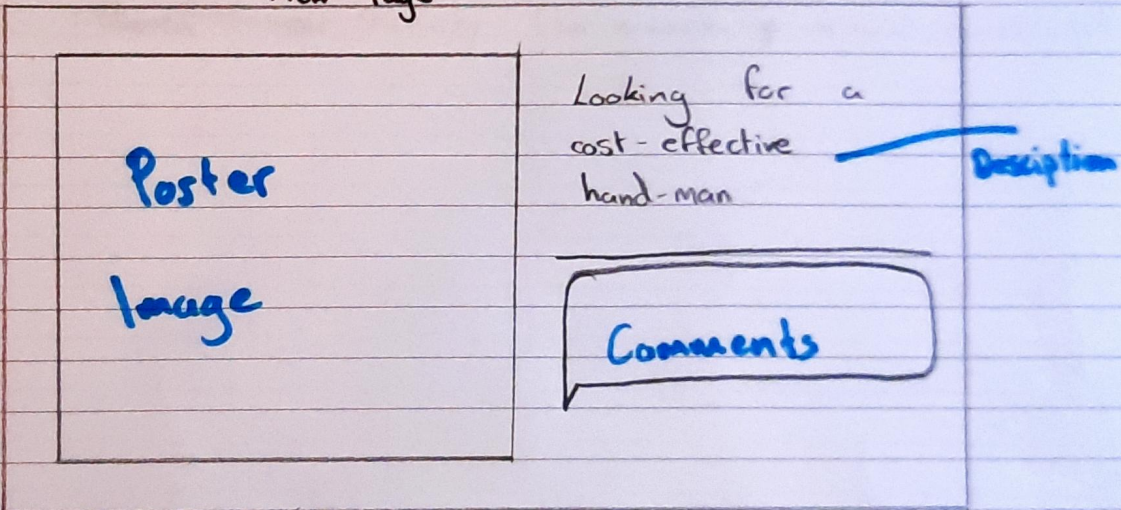 Page
Poster
Image
Looking for a
cost-effective
hand-man
Desciption
Comments